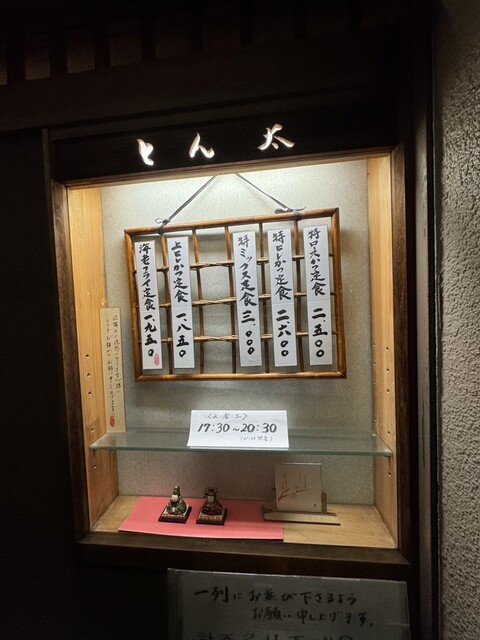 とん太
特ロースかつ定食 二、五〇〇
特ヒレかつ定食 二、六〇〇
特ミックス定食 三、〇〇〇
上ヒレかつ定食 一、八五〇
海老フライ定食 一、九五〇
17:30~20:30
一列にお並び下さるよう
お願い申し上げます。